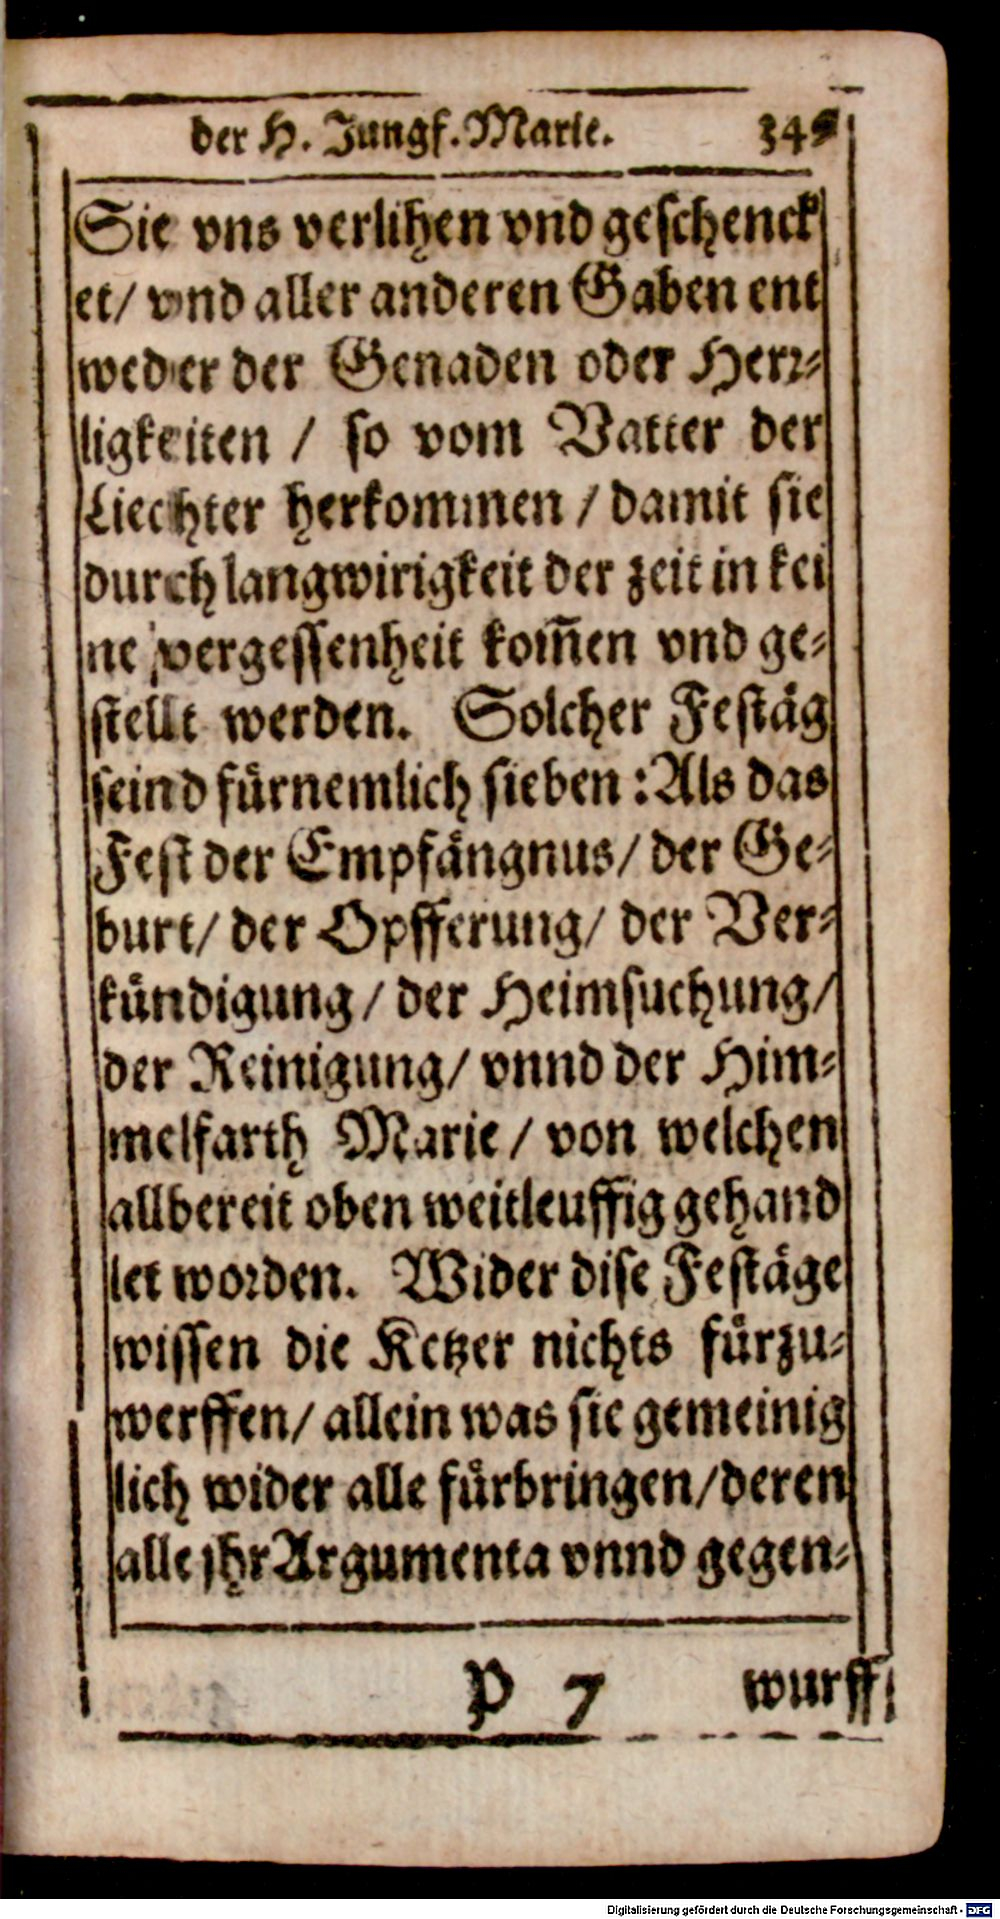 der H. Jungf. Marie.
Sie vns verlihen vnd geschenck
et/ vnd aller anderen Gaben ent
weder der Genaden oder Herr⸗
ligkeiten / so vom Vatter der
Liechter herkommen / damit sie
durch langwirigkeit der zeit in kei
ne vergessenheit kom̃en vnd ge⸗
stellt werden. Solcher Festäg
seind fürnemlich sieben : Als das
Fest der Empfängnus/ der Ge⸗
burt/ der Opfferung/ der Ver⸗
kündigung / der Heimsuchung/
der Reinigung/ vnnd der Him⸗
melfarth Marie / von welchen
allbereit oben weitleuffig gehand
let worden. Wider dise Festäge
wissen die Ketzer nichts fürzu⸗
werffen/ allein was sie gemeinig
lich wider alle fürbringen/deren
alle jhr Argumenta vnnd gegen⸗
P 7 wurff
Digitalisierung gefördert durch die Deutsche Forschungsgemeinschaft - DFG